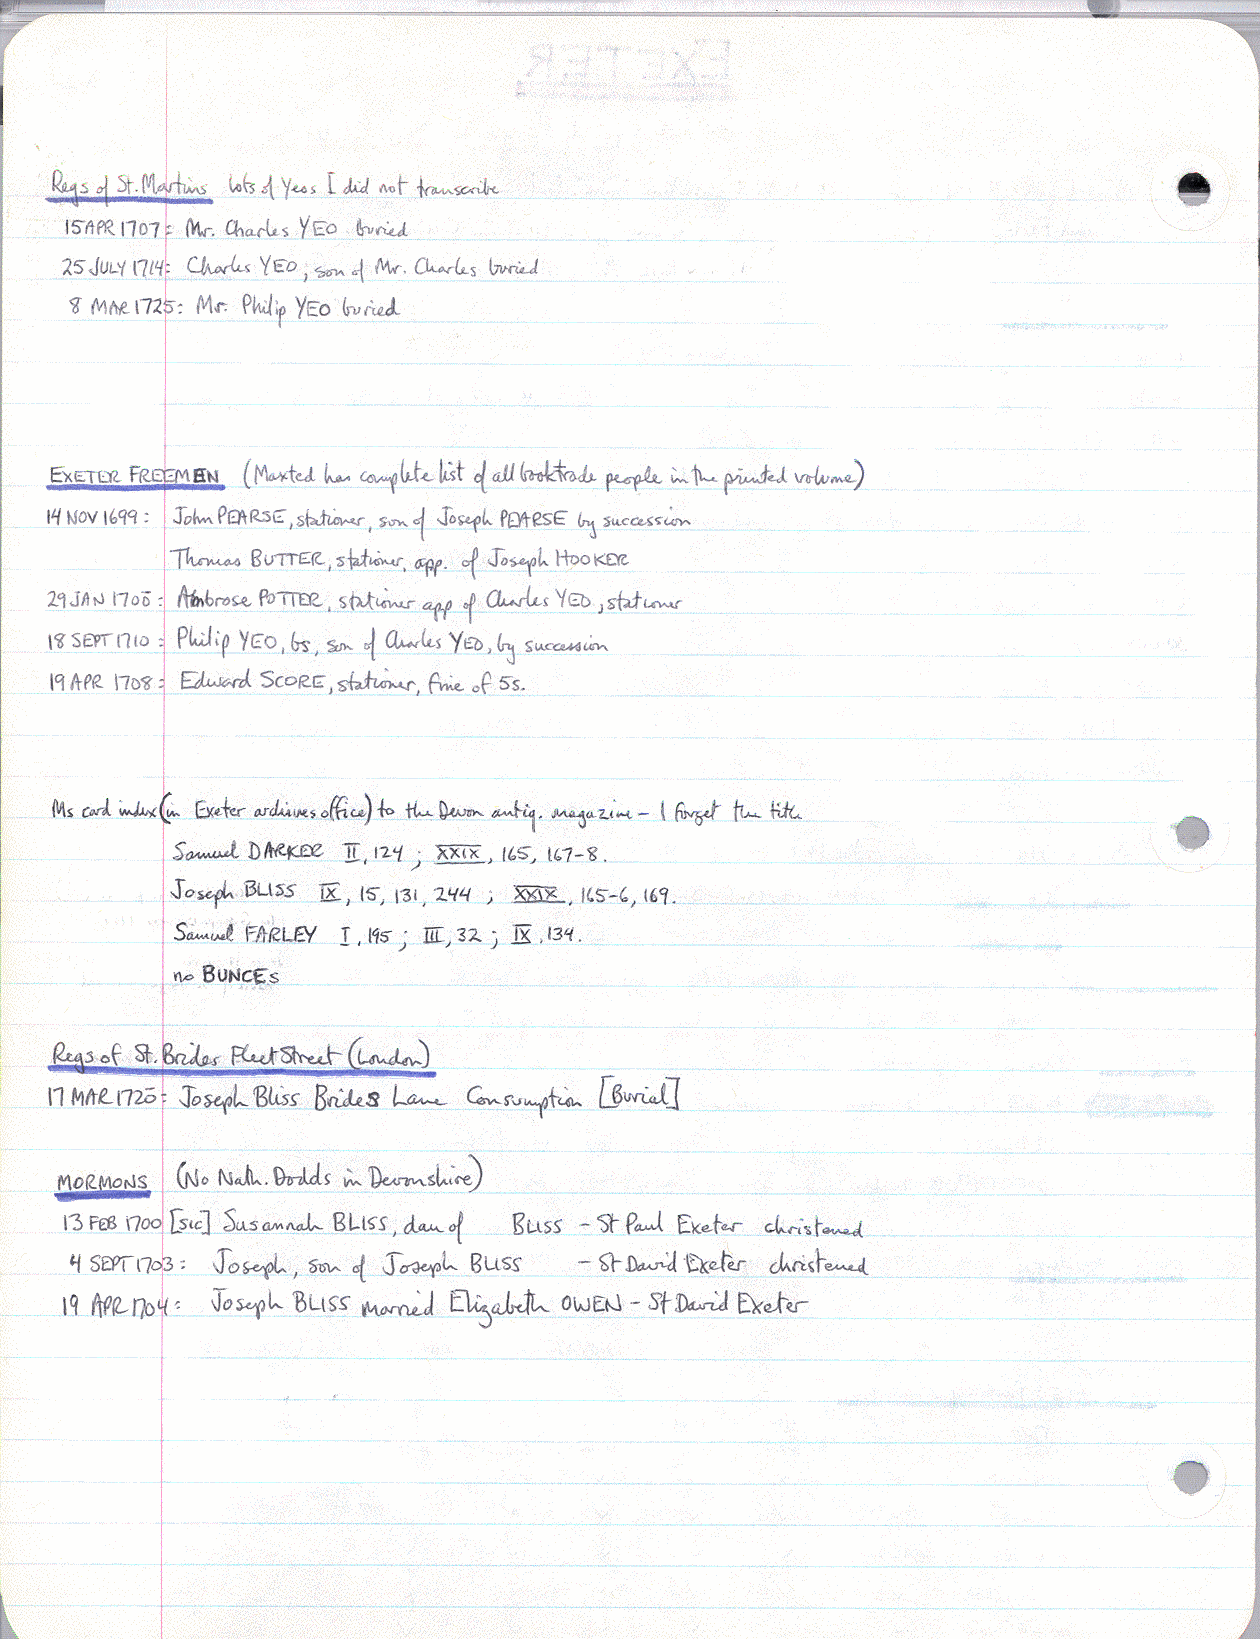 EXETER
Regs of St. Martins lots of Yeos I did not transcribe
15 APR 1707: Mr. Charles YEO buried
25 JULY 1714: Charles YEO, son of Mr. Charles buried
8 MAR 1725: Mr. Philip YEO buried
EXETER FREEMEN (Maxted has complete list of all booktrade people in the printed volume)
14 NOV 1699: John PEARSE, stationer, son of Joseph PEARSE by succession
Thomas BUTTER, stationer, app. of Joseph HOOKER
29 JAN 1700: Ambrose POTTER, stationer app of Charles YEO, stationer
18 SEPT 1710: Philip YEO, bs, son of Charles YEO, by succession
19 APR 1708: Edward SCORE, stationer, fine of 5s.
Ms card index (in Exeter archives office) to the Devon antiq. magazine - I forget the title
Samuel DARKER II, 124; XXIX, 165, 167-8.
Joseph BLISS IX, 15, 131, 244; XXIX, 165-6, 169.
Samuel FARLEY I, 195; III, 32; IX, 134.
no BUNCEs
Regs of St. Brides Fleet Street (London)
17 MAR 1725: Joseph Bliss Brides Lane Consumption [Burial]
MORMONS (No Nath. Dodds in Devonshire)
13 FEB 1700 [sic] Susannah BLISS, dau of BLISS - St Paul Exeter christened
4 SEPT 1703: Joseph, son of Joseph BLISS - St David Exeter christened
19 APR 1704: Joseph BLISS married Elizabeth OWEN - St David Exeter